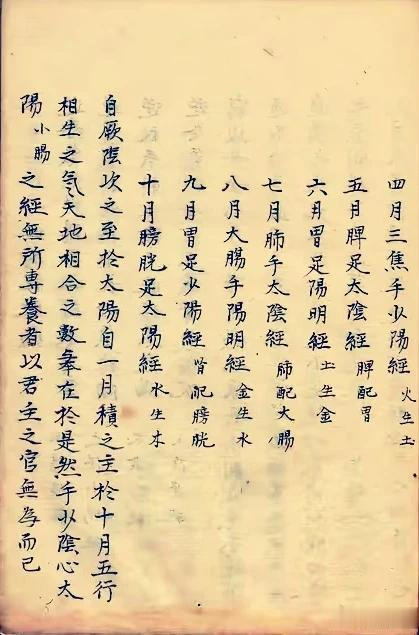 四月三焦手少陽經 火生土
五月脾足太陰經 脾配胃
六月胃足陽明經 土生金
七月肺手太陰經 肺配大腸
八月大腸手陽明經 金生水
九月胃足少陽經 腎配膀胱
十月膀胱足太陽經 水生木
自厥陰次之至於太陽自一月積之主於十月五行
相生之氣天地相合之數皋在於是然手少陰心太
陽小腸之經無所專養者以君主之官無為而已